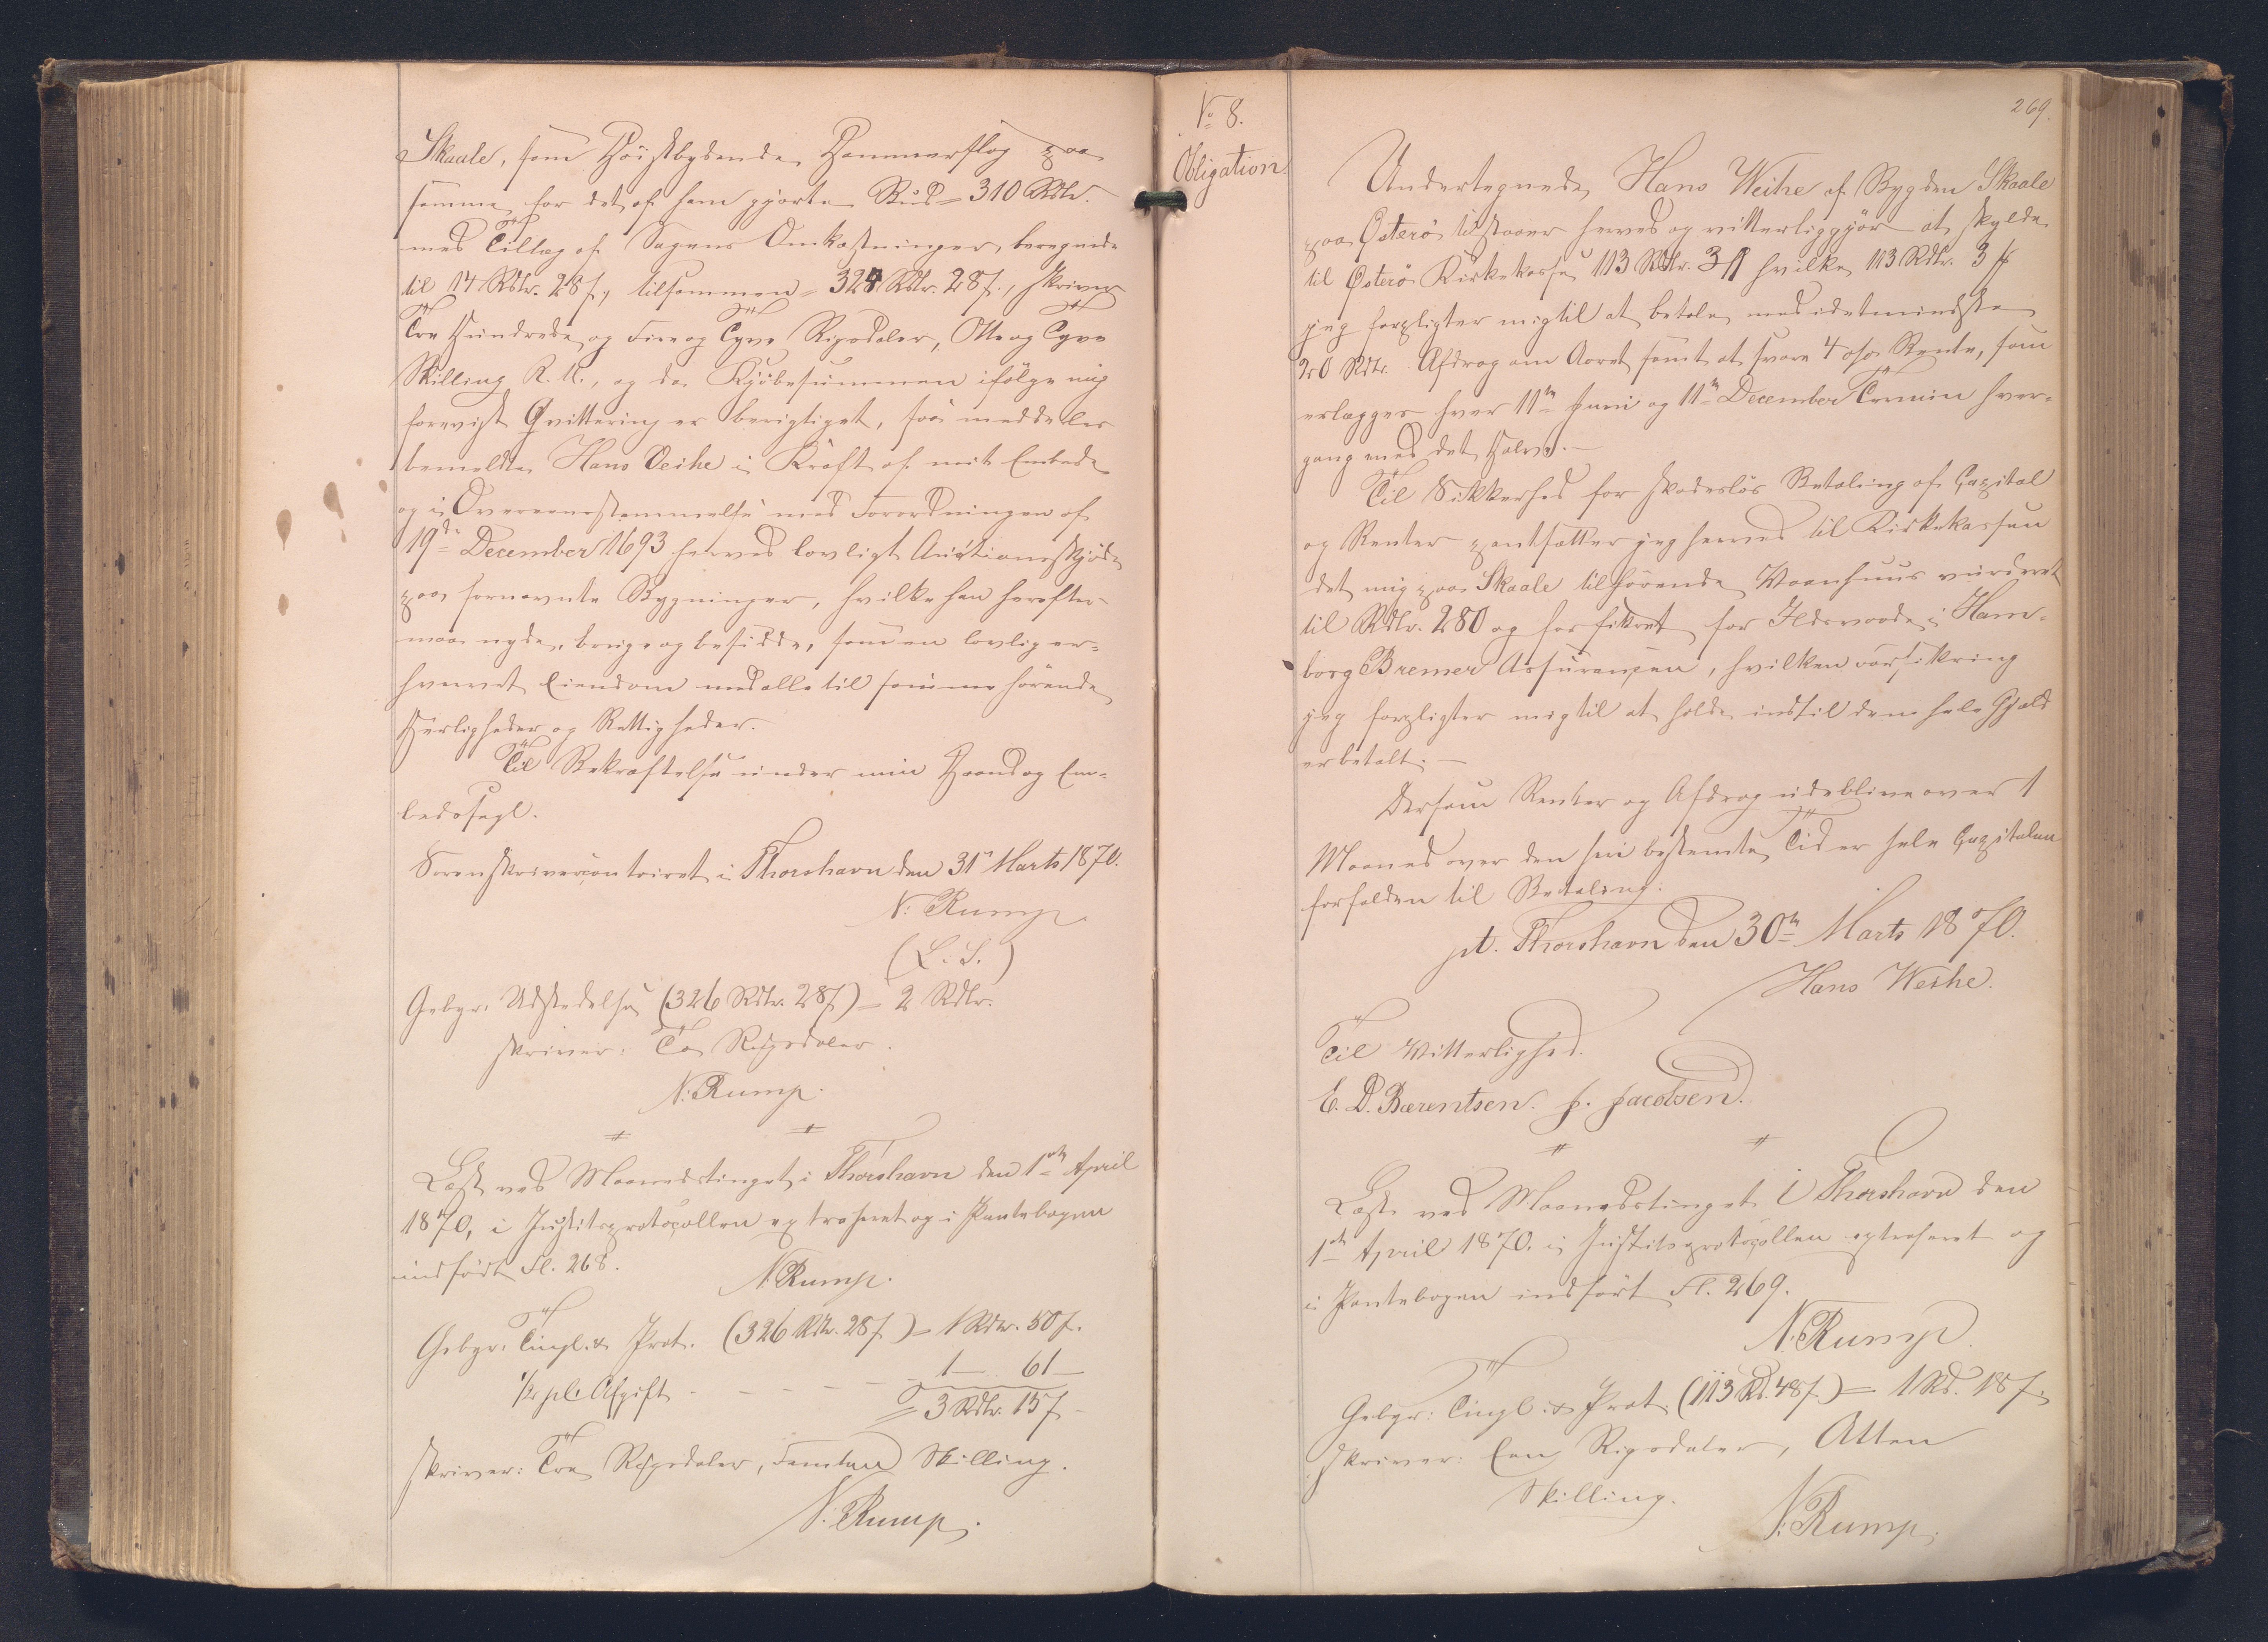 Skaale, som Høistbydende, Hammerslag paa
samme for det af ham gjorte Bud = 310 Rdlr.
med Tillæg af Sagens Omkostninger, beregnede
til 14 Rdlr. 28 s, tilsammen = 324 Rdlr. 28 s., skriver
Tre Hundrede og Fire og Tyve Rigsdaler, Otte og Tyve
Skilling R. M., og da Kjøbesummen ifølge mig
forevist Qvittering er berigtiget, saa meddeles
bemeldte Hans Veihe i Kraft af mit Embede
og i Overeensstemmelse med Forordningen af
19de December 1693 herved lovligt Auctionsskjøde
paa fornævnte Bygninger, hvilke han herefter
maa nyde, bruge og besidde, som en lovlig er-
hvervet Eiendom med alle til samme hørende
Herligheder og Rettigheder.
Til Bekræftelse under min Haand og Em-
bedssegl.
Sorenskrivercontoiret i Thorshavn den 31te Marts 1870.
N. Rump.
(L. S.)
Gebyr: Udstedelse (326 Rdlr. 28 s) = 2 Rdlr.
skriver: To Rigsdaler.
N. Rump.
Læst ved Maanedstinget i Thorshavn den 1ste April
1870, i Justitsprotocollen extraheret og i Pantebogen
indført Fl. 268.
N. Rump.
Gebyr: Tingl. & Prot. (326 Rdlr. 28 s) = 1 Rdlr. 50 s.
½ pCt Afgift - - - - - 1 — 61 —
= 3 Rdlr. 15 s
skriver: Tre Rigsdaler, Femten Skilling.
N. Rump.
No 8.
Obligation.
269.
Undertegnede Hans Weihe af Bygden Skaale
paa Østerø tilstaaer herved og vitterliggjør at skylde
til Østerø Kirkekasse 113 Rdlr. 3 ℔ hvilke 113 Rdlr. 3 ℔
jeg forpligter mig til at betale med idetmindste
20 Rdlr. Afdrag om Aaret samt at svare 4 o/o Rente, som
erlægges hver 11te Juni og 11te December Termin hver-
gang med det Halve. —
Til Sikkerhed for skadesløs Betaling af Capital
og Renter pantsætter jeg herved til Kirkekassen
det mig paa Skaale tilhørende Vaanhuus vurderet
til Rdlr. 280 og forsikret for Ildsvaade i Ham-
borg Bremer Assurancen, hvilken Forsikring
jeg forpligter mig til at holde indtil den hele Gjæld
er betalt. —
Dersom Renter og Afdrag udeblive over 1
Maaned over den heri bestemte Tid er hele Capitalen
forfalden til Betaling.
pt. Thorshavn den 30te Marts 1870.
Hans Weihe.
Til Vitterlighed.
E. D. Bærentsen. J. Jacobsen.
Læst ved Maanedstinget i Thorshavn den
1ste April 1870. i Justitsprotocollen extraheret og
i Pantebogen indført Fl. 269.
N. Rump
Gebyr: Tingl. & Prot. (113 Rd. 48 s.) = 1 Rd. 18 s.
skriver: Een Rigsdaler, Atten
Skilling.
N. Rump.